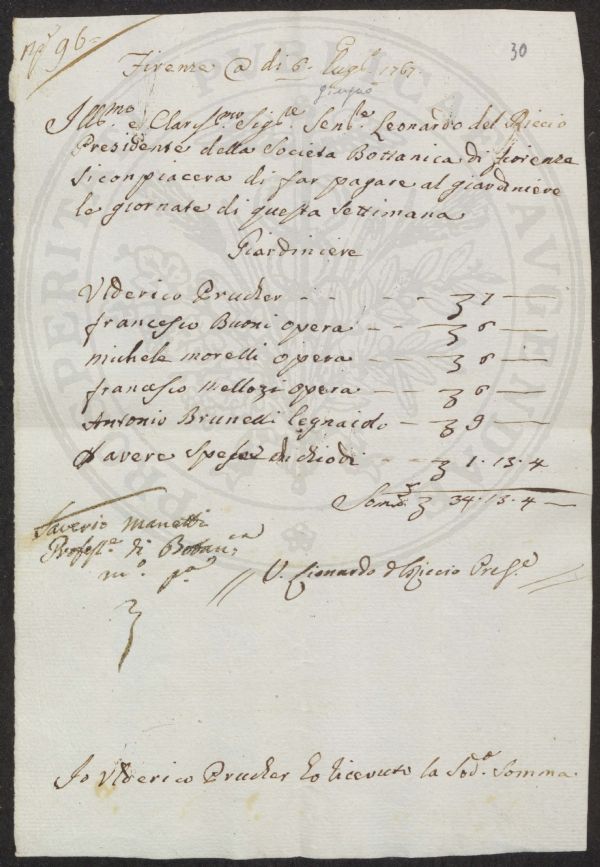 Nº 96
30
Firenze @ di 6. Lugl.º 1767.
giugno
Ill.mo e Clariss.mo Sig.re Sen.re Leonardo del Riccio
Presidente della Societa Bottanica di fiorenza
Si conpiacera di far pagare al giardiniere
le giornate di questa Settimana
Giardiniere
Vlderico Prucher - - - - Ʒ 7 —
francesco Buoni opera - - - Ʒ 6 —
michele morelli opera - - Ʒ 6 —
francesco Mellozi opera - - Ʒ 6 —
Antonio Brunelli legnaiolo - Ʒ 9 —
d avere Spese di chiodi - - Ʒ 1. 13. 4
Som.a Ʒ 34. 13. 4 —
Saverio Manetti
Profess.e di Botan.ca
m.º p.a
// V. Lionardo d Riccio Pres.e //
Jo Vlderico Prucher ho ricevuto la Sod.a Somma.
PROSPERITATI PUBLICAE AUGENDAE